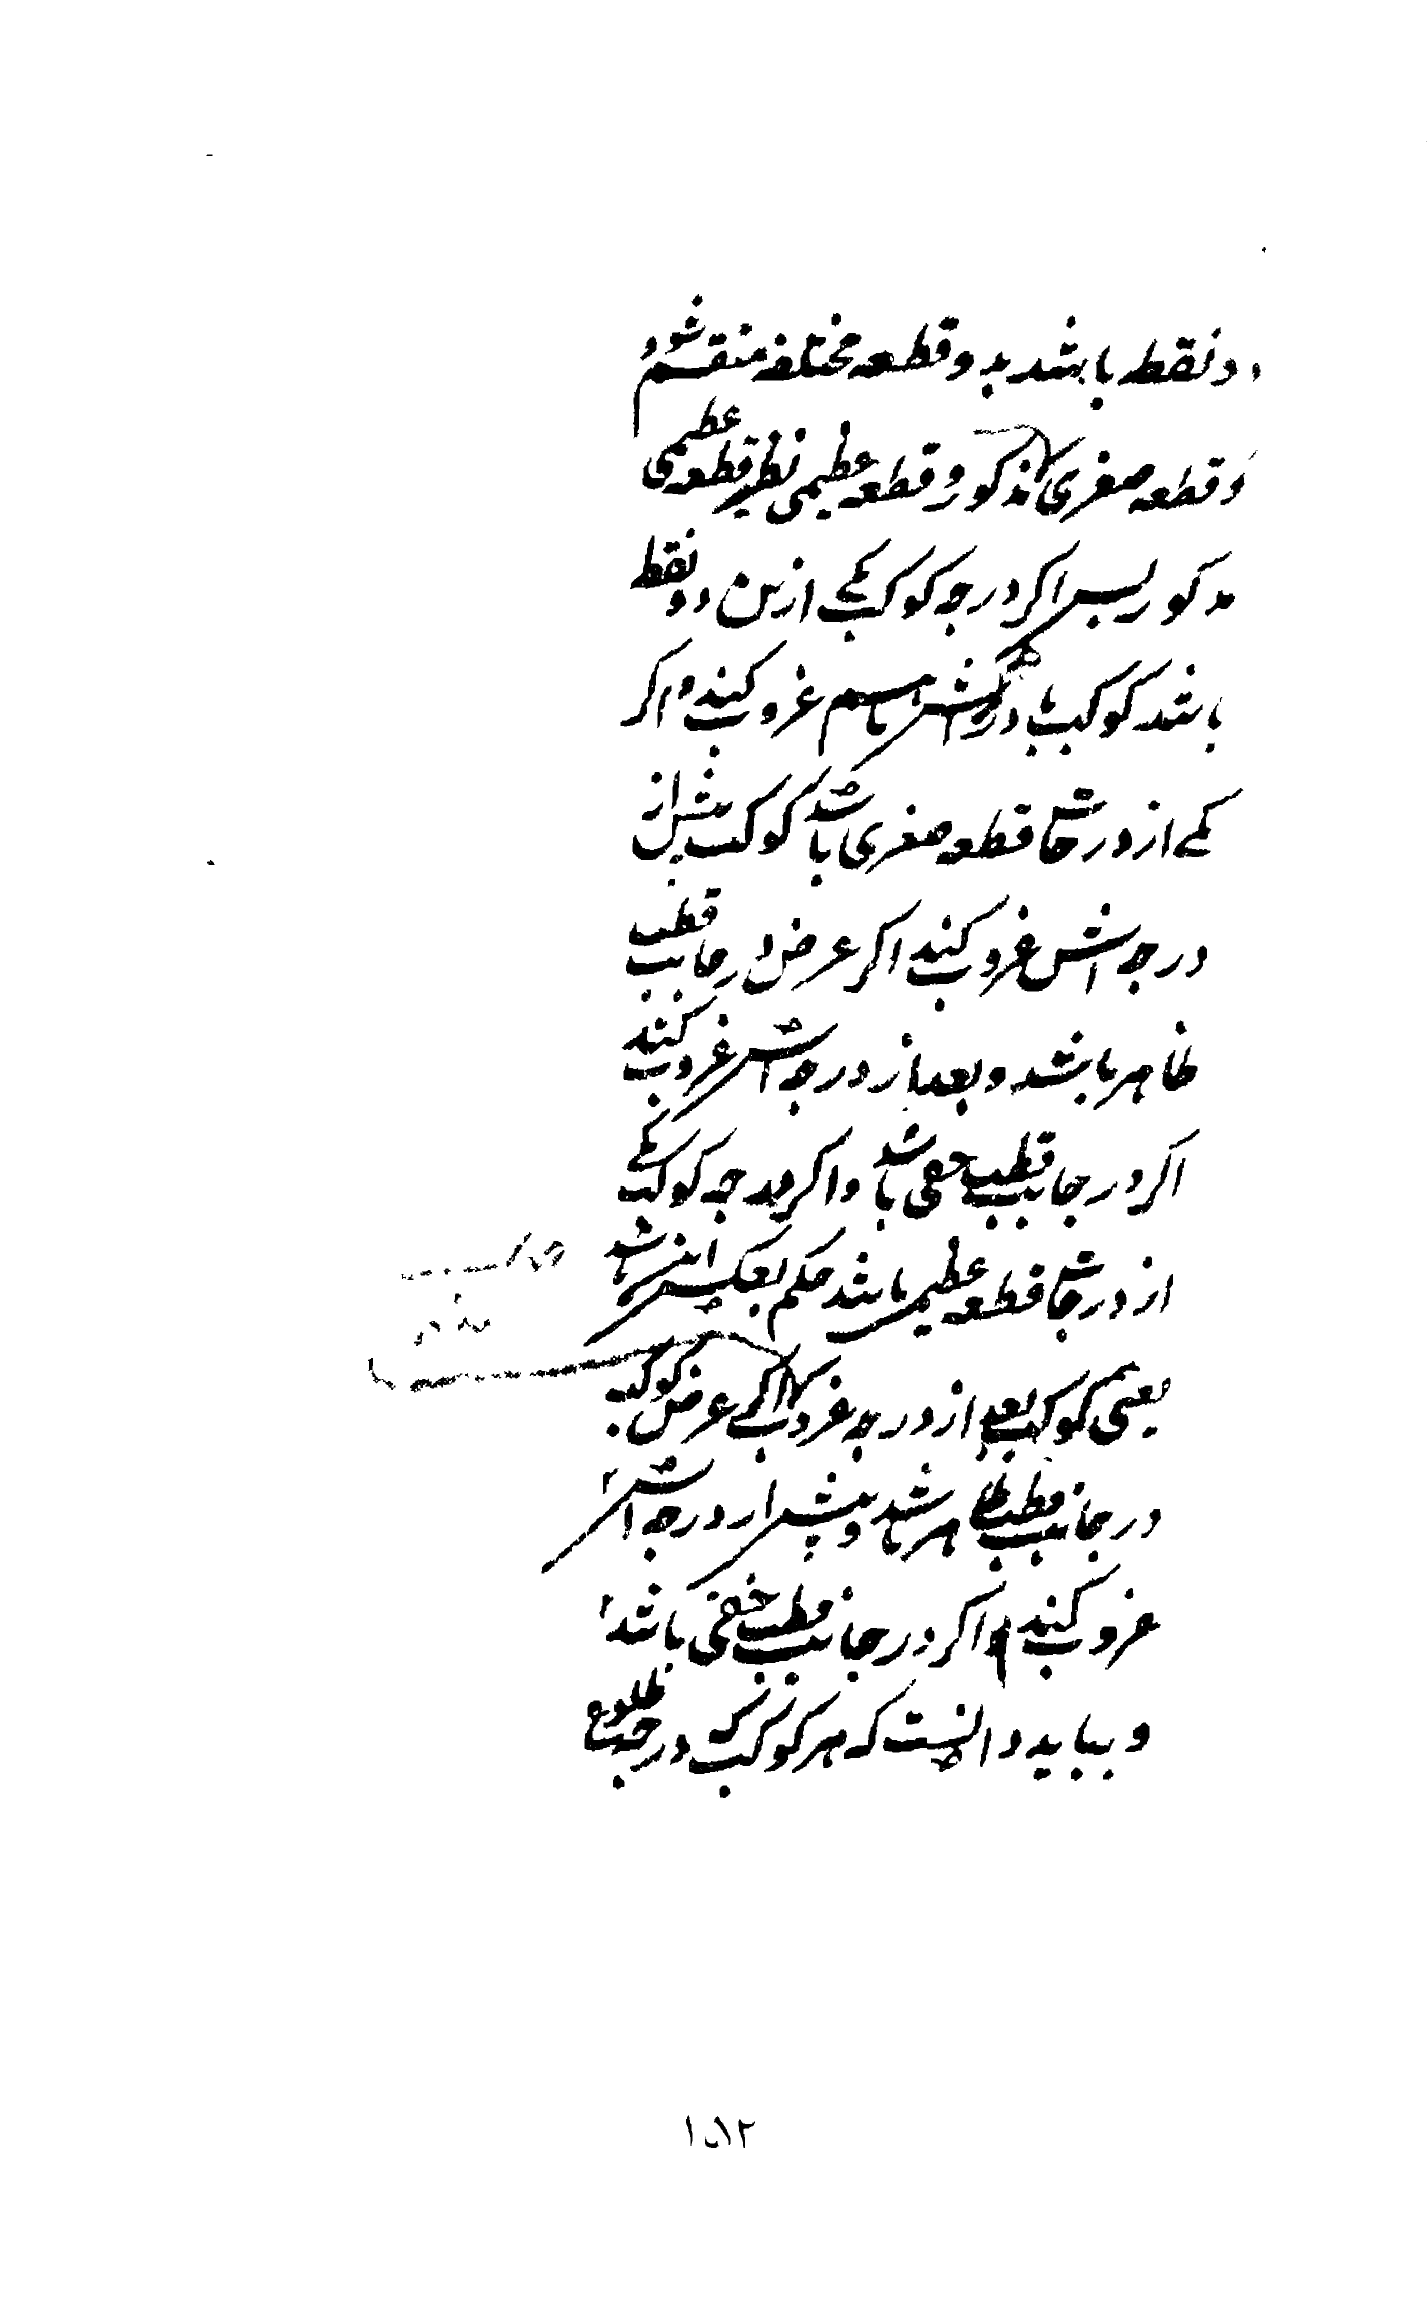 دو نقطه باشد بدو قطعه مختلفه منقسم شود
و قطعه صغری مذکور و قطعه عظیمی نظیر قطعه عظیمی
مذکور پس اگر درجه کوکبے ازین دو نقطه
باشد کوکب با درجه اش باسم غروب کند و اگر
کمے از درجات قطعه صغری باشد کوکب پیش از
درجه اش غروب کند اگر عرض در جانب قطب
ظاهر باشد و بعد از درجه اش غروب کند
اگر در جانب قطب خفی باشد و اگر درجه کوکبے
از درجات قطعه عظیمی باشد حکم بعکس این باشد
یعنی کوکب بعد از درجه غروب اگر عرض کوکب
در جانب قطب ظاهر باشد و پیش از درجه اش
غروب کند و اگر در جانب قطب خفی باشد
و بباید دانست که هر کوکب که در جهت طلوع